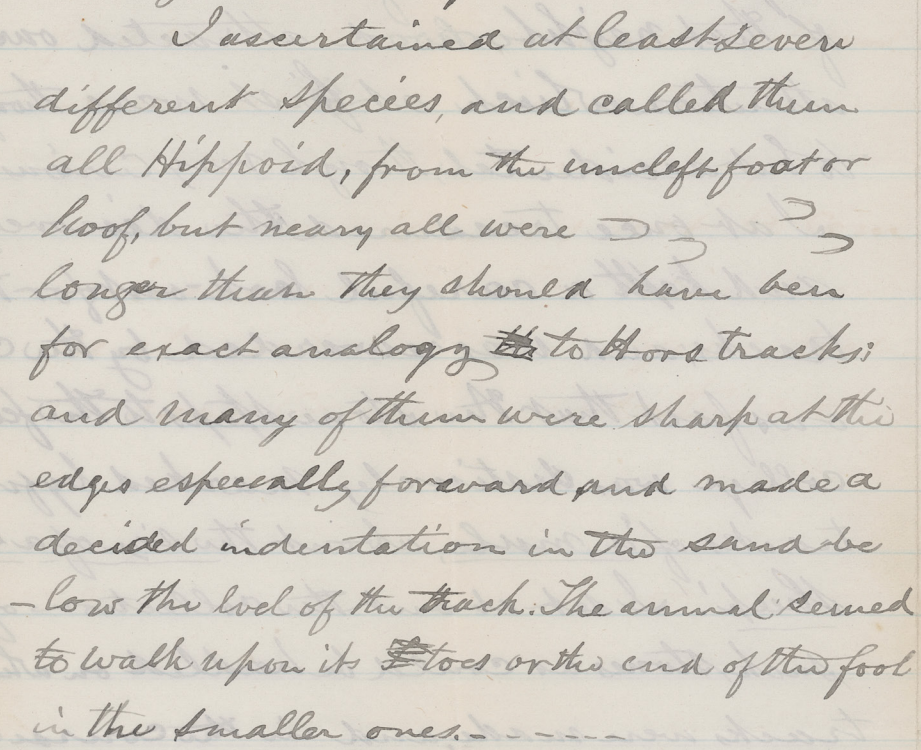 I ascertained at least seven
different species, and called them
all Hippoid, from the uncleft foot or
hoof, but neary all were
longer than they should have been
for exact analogy to Hors tracks;
and many of them were sharp at the
edges especially foraward, and made a
decided indentation in the sand be
-low the level of the track. The animal seemed
to walk upon its toes or the end of the foot
in the smaller ones. - - - - - -